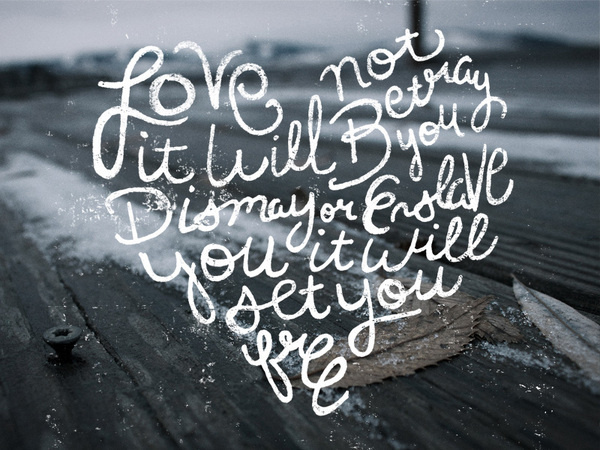 LoVe
it will
not
Betray
you
Dismay or EnslaVE
you it will
set you
free